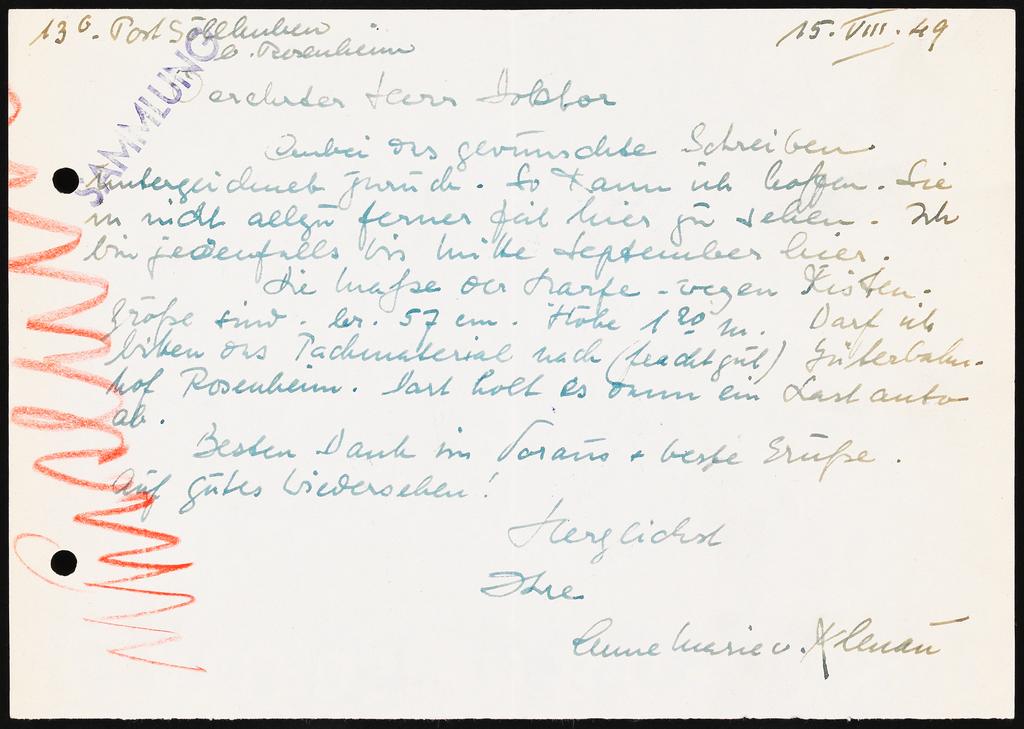 13b. Post Söllhuben
b. Rosenheim
15. VIII. 49
SAMMLUNG
Verehrter Herr Doktor
Anbei das gewünschte Schreiben
unterzeichnet zurück. So kann ich hoffen. Sie
in nicht allzu ferner Zeit hier zu sehen. Ich
bin jedenfalls bis Mitte September hier.
Die Maße der Harfe - wegen Kisten-
größe sind. br. 57 cm. Höhe 1 20 m. Darf ich
bitten das Packmaterial nach (frachtgut) Güterbahn-
hof Rosenheim. Dort holt es dann ein Lastauto
ab.
Besten Dank im Voraus + beste Grüße.
Auf gutes Wiedersehen!
Herzlichst
Ihre
Annemarie v. Klenau